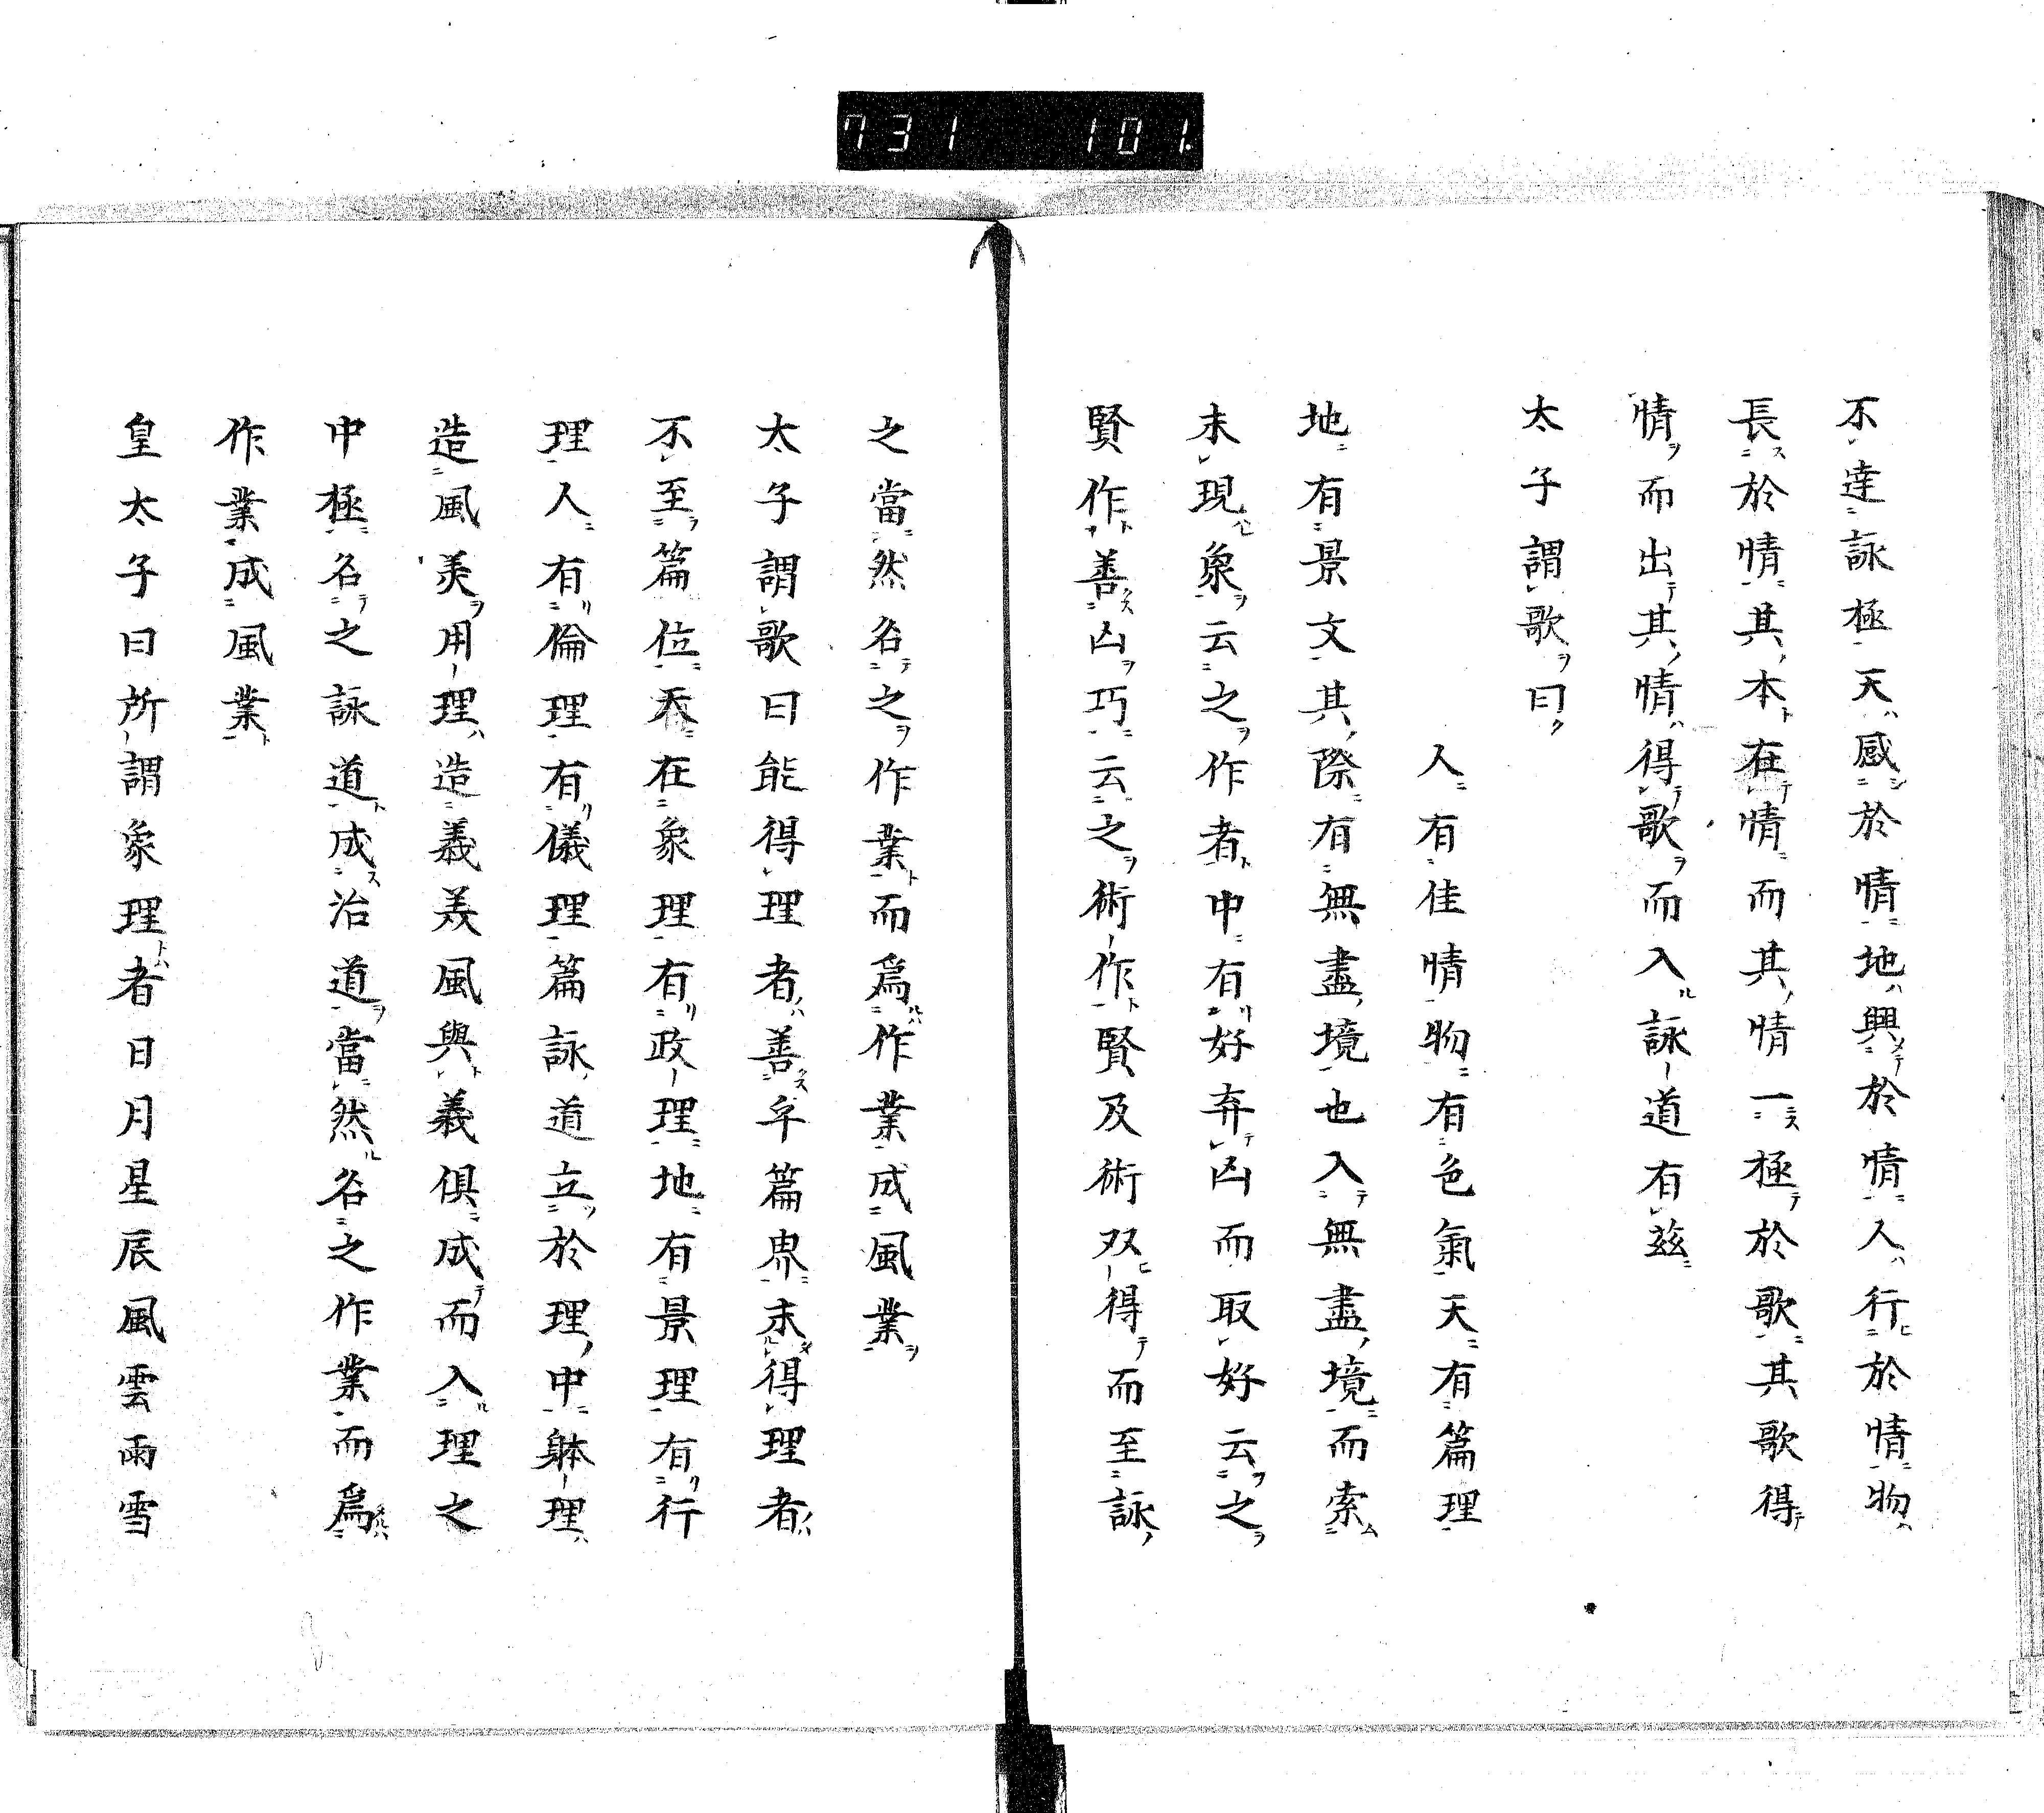 731 101.
不達詠極天感於情地興於情人行於情物
長於情其本在情而其情一極於歌其歌得
情而出其情得歌而入詠道有茲
太子謂歌曰
人有佳情物有色氣天有篇理
地有景文其際有無盡境也入無盡境而索
未現象云之作者中有好弃凶而取好云之
賢作善凶巧云之術作賢及術双得而至詠
之當然名之作業而為作業成風業
太子謂歌曰能得理者善乎篇界未得理者
不至篇位天在象理有政理地有景理有行
理人有倫理有儀理篇詠道立於理中躰理
造風美用理造義美風與義俱成而入理之
中極名之詠道成治道當然名之作業而為
作業成風業
皇太子曰所謂象理者日月星辰風雲雨雪